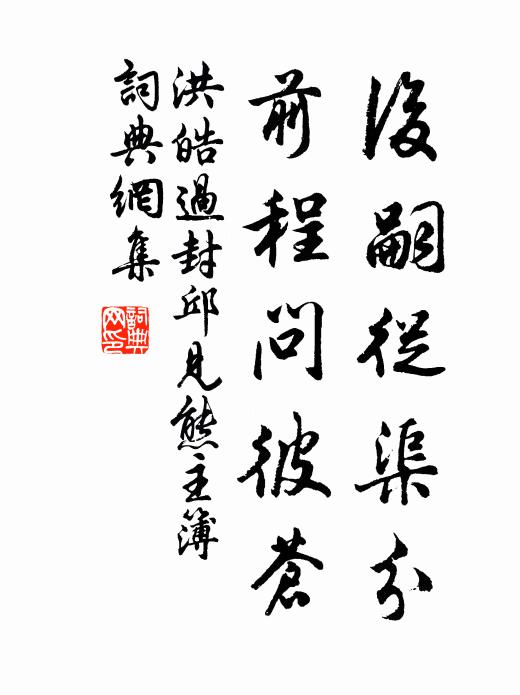 後嗣從渠分
前程問彼蒼
洪皓過封邱見熊主簿
詞典網集
詞典网印